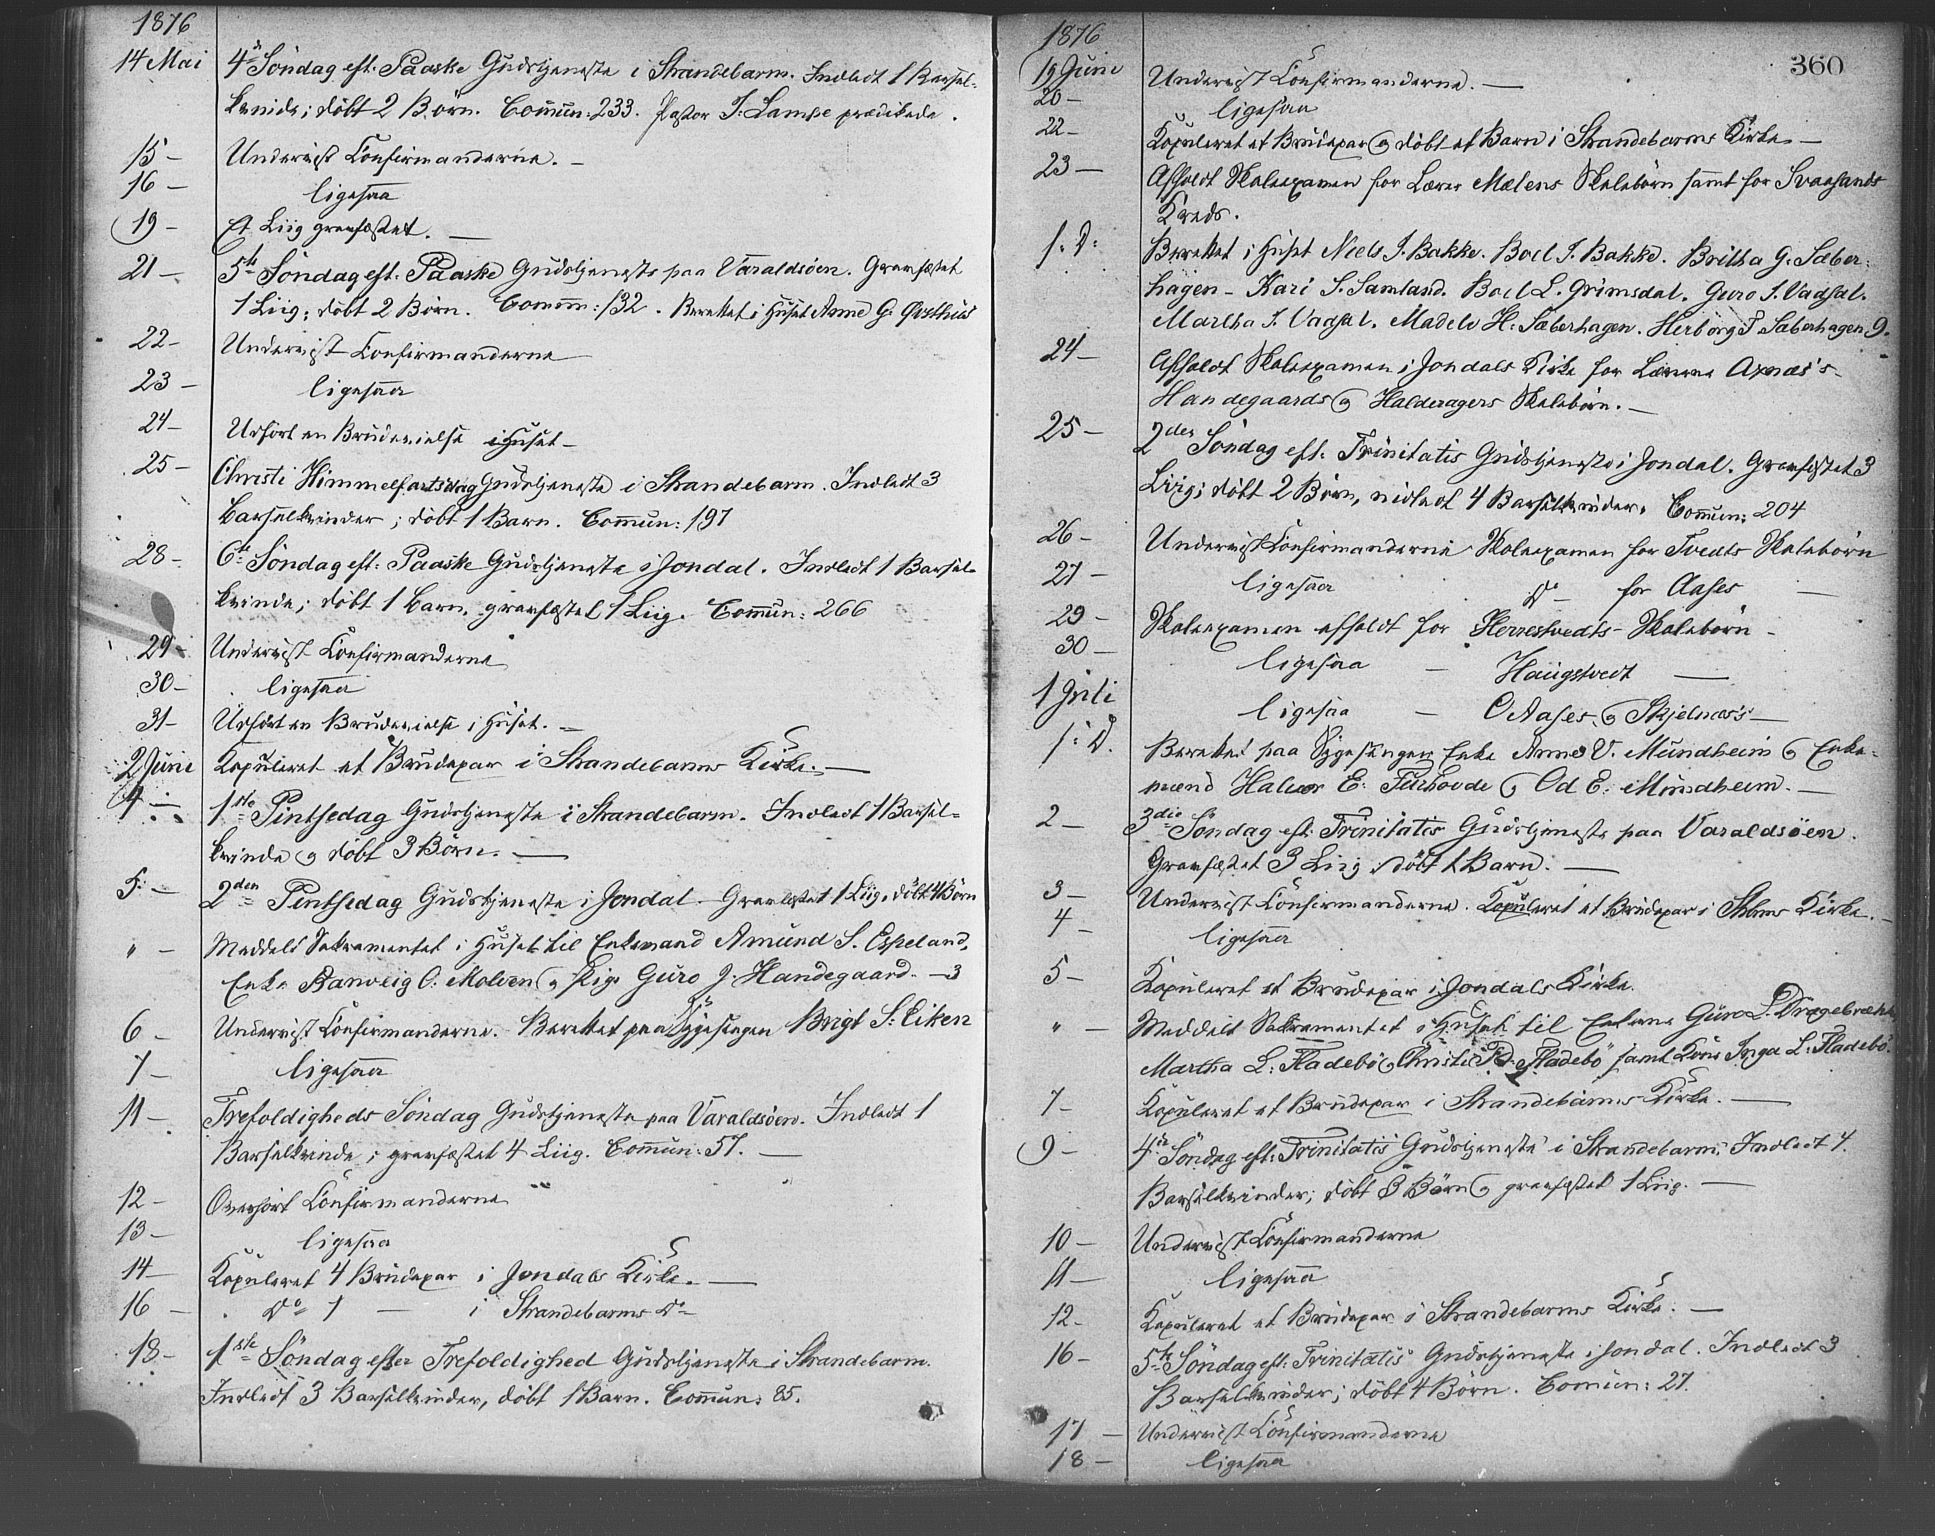 1876
14 Mai 4de Söndag eft. Paaske Gudstjeneste i Strandebarm. Indledt 1 Barsel-
kvinde; döbt 2 Börn. Commun: 233. Pastor J. Lampe prædikede.
15 – Underviist Confirmanderne. –
16 – ligesaa
19 – Et Liig gravfæstet. –
21 – 5te Söndag eft. Paaske Gudstjeneste paa Varaldsöen. Gravfæstet
1 Liig; döbt 2 Börn. Commun: 132. Berettet i Huset Anne G.
22 – Underviist Confirmanderne
23 – ligesaa
24 – Udfört en Brudevielse i Huset –
25 – Christi Himmelfartsdag Gudstjeneste i Strandebarm. Indledt 3
Barselkvinder; döbt 1 Barn. Commun: 197
28 – 6te Söndag eft: Paaske Gudstjeneste i Jondal. Indledt 1 Barsel-
kvinde; döbt 1 Barn, gravfæstet 1 Liig. Commun: 266
29 – Underviist Confirmanderne
30 – ligesaa
31 – Udfört en Brudevielse i Huset. –
2 Juni Kopuleret et Brudepar i Strandebarms Kirke. –
4 – 1ste Pintsedag Gudstjeneste i Strandebarm. Indledt 1 Barsel-
kvinde og döbt 3 Börn. –
5 – 2den Pintsedag Gudstjeneste i Jondal. Gravfæstet 1 Liig, döbt 4 Börn
" – Meddelt Sakramentet i Huset til Enkemand Amund S. Espeland,
Enke Ranveig O. Molven og Pige Guro J. Handegaard. – 3
6 – Underviist Confirmanderne. Berettet paa Sygesengen Brigt S. Eiken
7 – ligesaa
11 – Trefoldigheds Söndag Gudstjeneste paa Varaldsöen. Indledt 1
Barselkvinde; gravfæstet 4 Liig. Commun: 57. –
12 – Overhört Confirmanderne
13 – ligesaa
14 – Kopuleret 4 Brudepar i Jondals Kirke. –
16 – Do 1 – i Strandebarms Do
18 – 1ste Söndag efter Trefoldighed Gudstjeneste i Strandebarm.
Indledt 3 Barselkvinder, döbt 1 Barn. Commun: 85.
1876
360
19 Juni Underviist Confirmanderne. –
20 – ligesaa
22 – Kopuleret et Brudepar og döbt et Barn i Strandebarms Kirke –
23 – Afholdt Skoleexamen for Lærer Mælens Skolebörn samt for Svaasands
Kreds.
s. D: Berettet i Huset Niels J. Bakke. Boel J. Bakke. Britha G. Sæber-
hagen – Kari S. Samland. Boel L. Grimsdal. Guro S. Vadsal.
Martha J. Vadsal. Madele H. Sæberhagen. Herborg T Sæberhagen 9.
24 – Afholdt Skoleexamen i Jondals Kirke for Lærerne Axnæs's
Handegaards og Halderagers Skolebörn. –
25 – 2den Söndag eft. Trinitatis Gudstjeneste i Jondal. Gravfæstet 3
Liig; döbt 2 Börn, indledt 4 Barselkvinder. Commun: 204
26 – Underviist Confirmanderne Skoleexamen for Tvedts Skolebörn
27 – ligesaa Do – for Aases –
29 – Skoleexamen afholdt for Herrestvedts Skolebörn –
30 – ligesaa – Haugstvedt –
1 Juli ligesaa – O Aases og Skjelnæs's –
s: D. Berettet paa Sygesengen Enke Anne V. Mundheim og Enke-
mænd Halvor E. og Od E. Mundheim. –
2 – 3die Söndag eft. Trinitatis Gudstjeneste paa Varaldsöen.
Gravfæstet 3 Liig; döbt 1 Barn. –
3 – Underviist Confirmanderne. Kopuleret et Brudepar i Stbms Kirke. –
4 – ligesaa
5 – Kopuleret et Brudepar i Jondals Kirke.
" – Meddelt Sakramentet i Huset til Enkerne Guro L. Drægebrække
Martha L. Fladebö og Christi Fladebö samt Kone Inga L. Fladebö.
7 – Kopuleret et Brudepar i Strandebarms Kirke. –
9 – 4de Söndag eft: Trinitatis Gudstjeneste i Strandebarm. Indledt 4
Barselkvinder; döbt 3 Börn og gravfæstet 1 Liig. –
10 – Underviist Confirmanderne
11 – ligesaa
12 – Kopuleret et Brudepar i Strandebarms Kirke. –
16 – 5te Söndag eft. Trinitatis Gudstjeneste i Jondal. Indledt 3
Barselkvinder; döbt 4 Börn. Commun: 27.
17 – Underviist Confirmanderne
18 – ligesaa